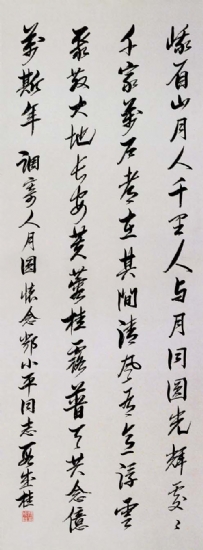 峨眉山月人千里人与月同圆光辉处处
千家万户都在其间清风吾意浮云
聚散大地长安芙蓉桂露普天共念亿
万斯年 调寄人月圆怀念邓小平同志 聂成桂